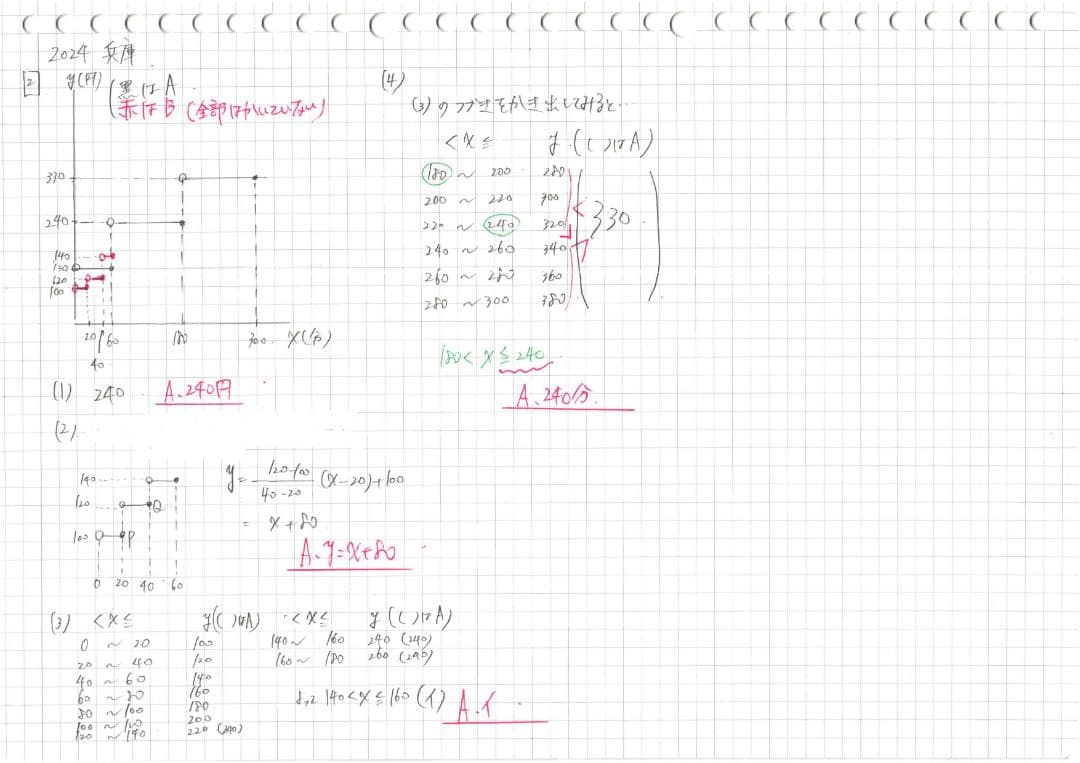 2024 兵庫
2 y(円) (黒はA
赤はB (全部はかいていない)
330
240
140
130
120
100
20 60 180 300 x(分)
40
(1) 240 A.240円
(2)
140
120 Q
100 P
0 20 40 60
y = 120-100/40-20 (x-20)+100
= x+80
A.y=x+80
(3) <x≦ y(( )はA)
0 ~ 20 100
20 ~ 40 120
40 ~ 60 140
60 ~ 80 160
80 ~ 100 180
100 ~ 120 200
120 ~ 140 220 (240)
<x≦ y (( )はA)
140~ 160 240 (240)
160~ 180 260 (240)
よって 140<x≦160 (イ) A.イ
(4)
(3)のつづきをかき出してみると..
<x≦ y (( )はA)
180 ~ 200 280
200 ~ 220 300
220 ~ 240 320 < 330
240 ~ 260 340
260 ~ 280 360
280 ~ 300 380
180< x ≦240
A.240分